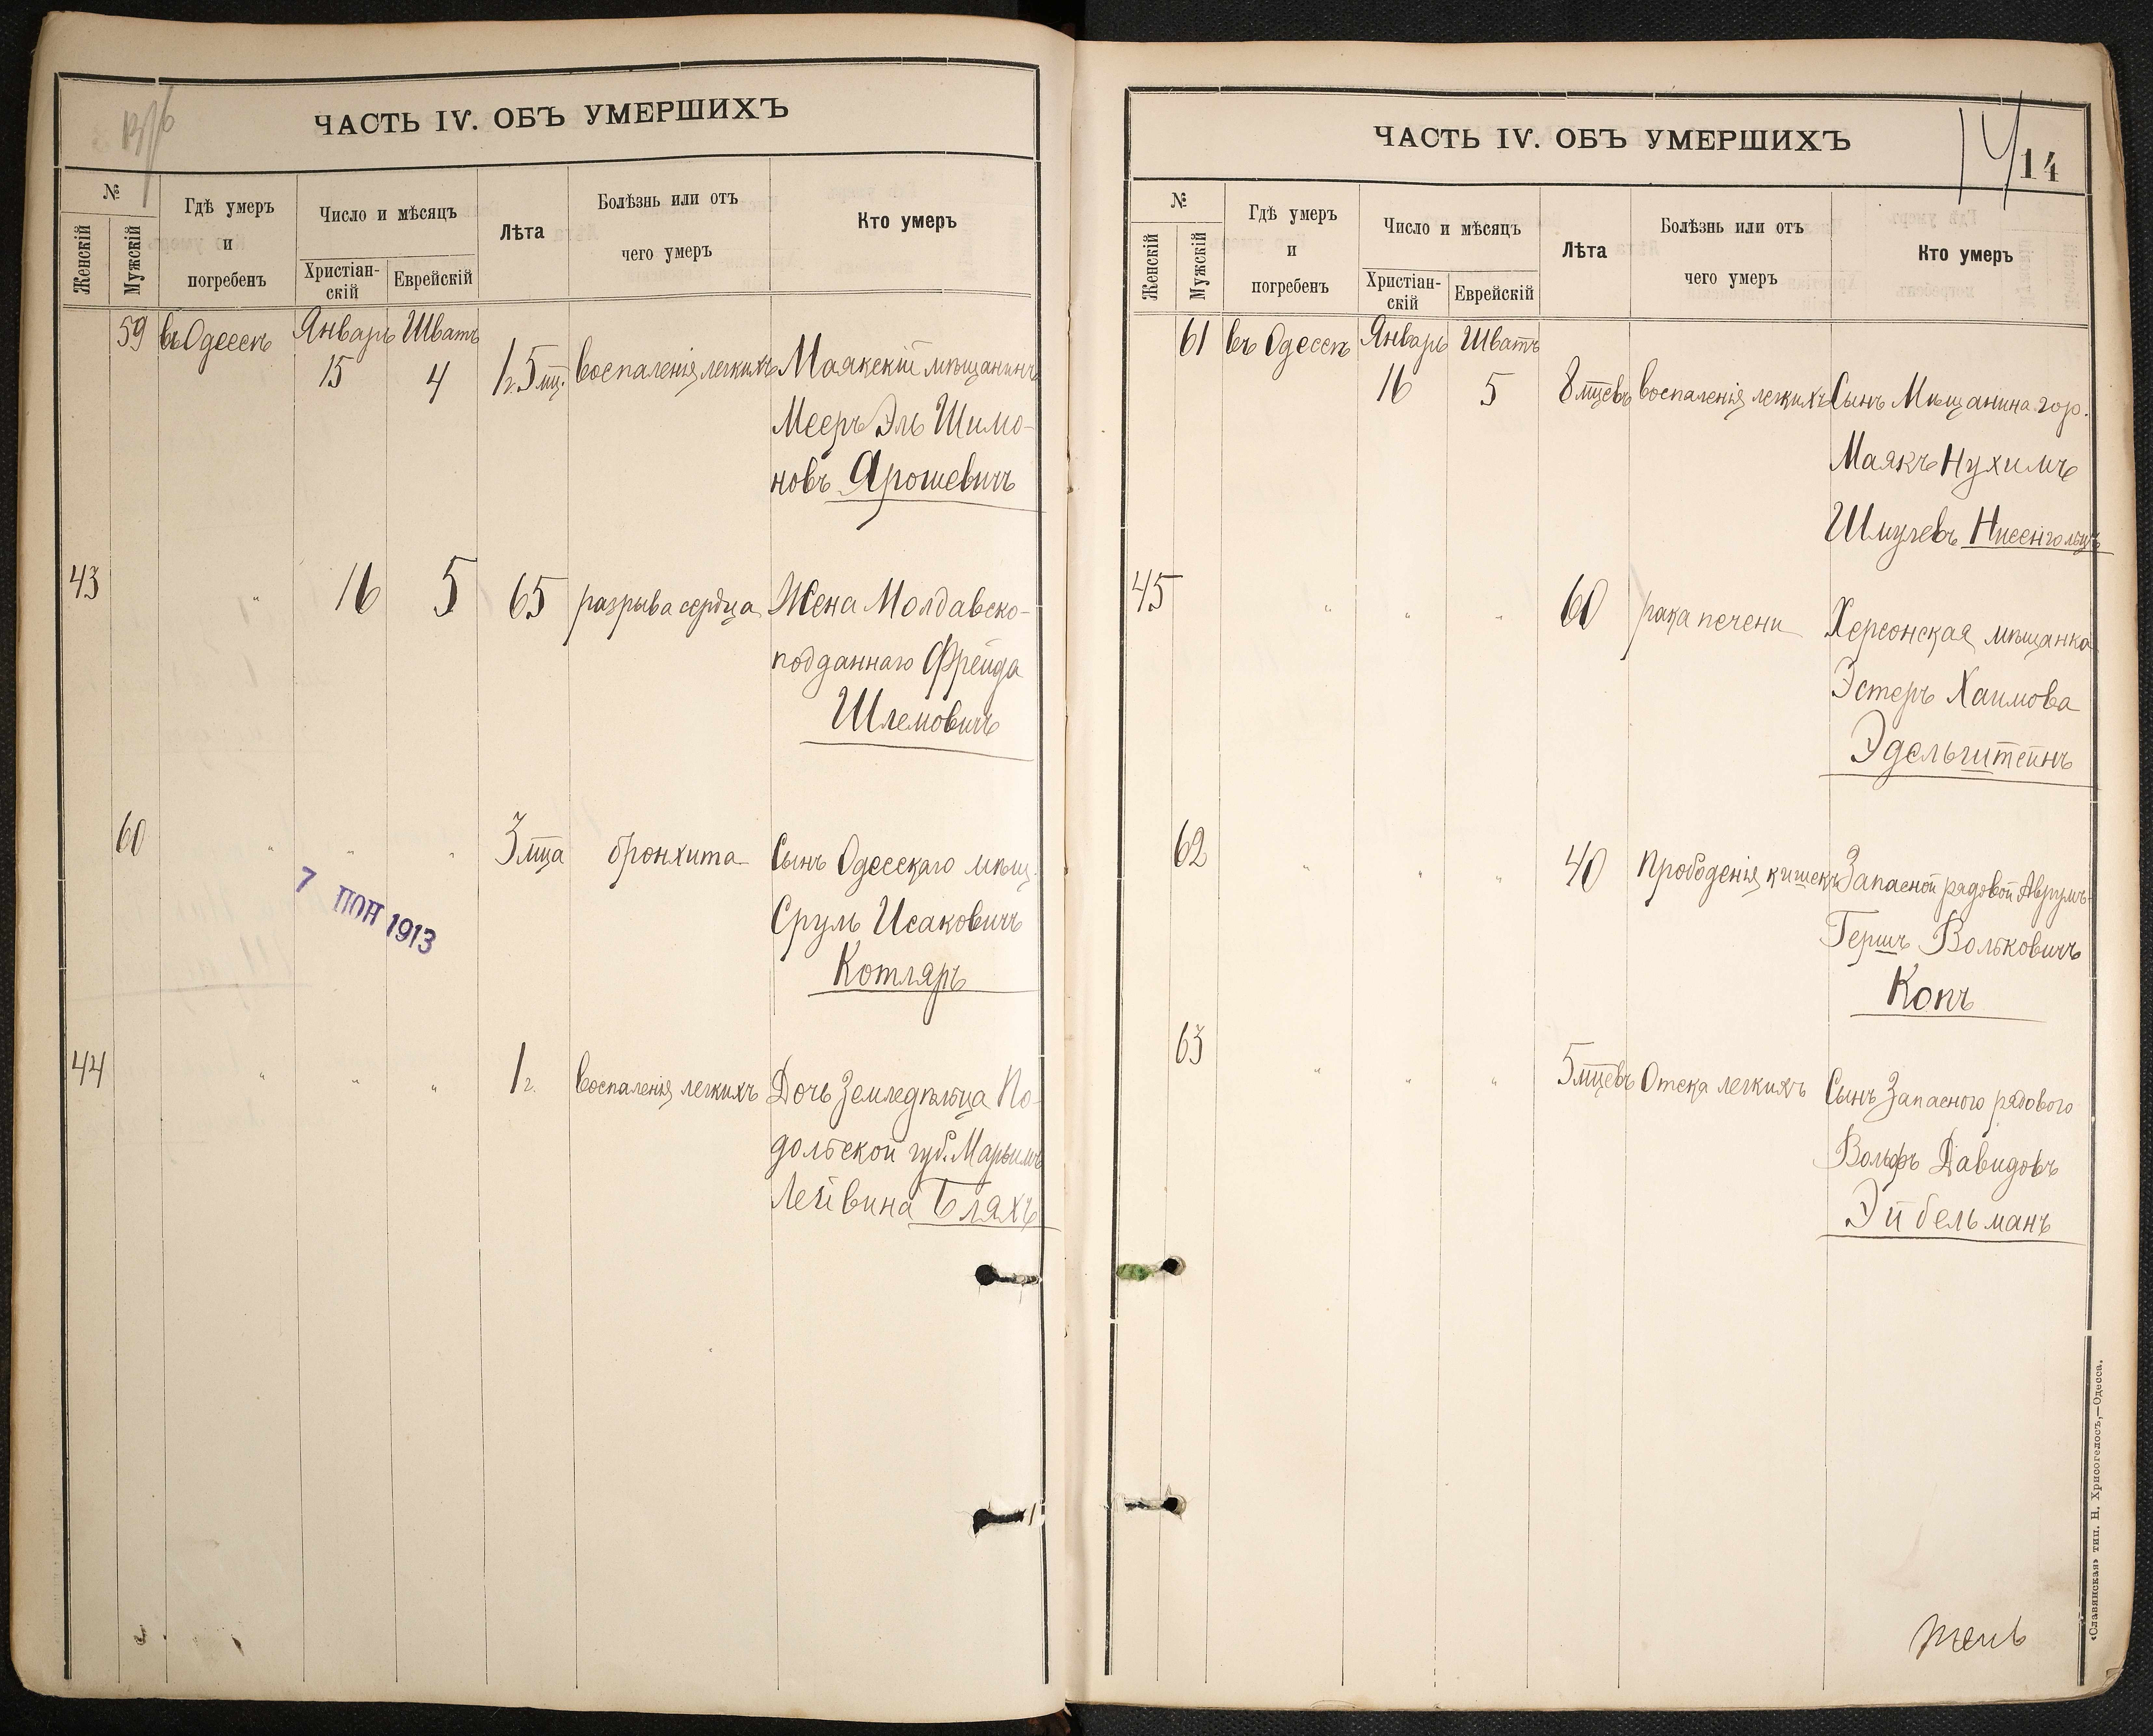 ЧАСТЬ IV. ОБЪ УМЕРШИХЪ
№
Женскій
Мужскій
Гдѣ умеръ
и
погребенъ
Число и мѣсяцъ
Христіан-
скій
Еврейскій
Лѣта
Болѣзнь или отъ
чего умеръ
Кто умеръ
59 въ Одессѣ Январь Шватъ
15 4 1г. 5 мц. воспаленія легкихъ Маякскій мѣщанинъ
Мееръ Эль Шимо-
новъ Ярошевичъ
43 " 16 5 65 разрыва сердца Жена Молдавско-
подданнаго Фрейда
Шлемовичъ
60 " " " 3 мца бронхита Сынъ Одесскаго мѣщ.
Сруль Исаковичъ
Котляръ
7 ІЮН 1913
44 " " " 1 г. воспаленія легкихъ Дочь Земледѣльца По-
дольской губ. Марьимъ
Лейвина Бляхъ
ЧАСТЬ IV. ОБЪ УМЕРШИХЪ
14
14
№
Женскій
Мужскій
Гдѣ умеръ
и
погребенъ
Число и мѣсяцъ
Христіан-
скій
Еврейскій
Лѣта
Болѣзнь или отъ
чего умеръ
Кто умеръ
61 въ Одессѣ Январь Шватъ
16 5 8 мцевъ воспаленія легкихъ Сынъ Мѣщанина гор.
Маякъ Нухимъ
Шмулевъ Нисенгольцъ
45 " " " 60 рака печени Херсонская мѣщанка
Эстеръ Хаимова
Эдельштейнъ
62 " " " 40 Прободенія кишекъ Запасной рядовой Аврумъ-
Гершъ Вольковичъ
Копъ
63 " " " 5 мцевъ Отека легкихъ Сынъ Запасного рядового
Вольфъ Давидовъ
Эйбельманъ
«Славянская» тип. Н. Хрисогелосъ,—Одесса.